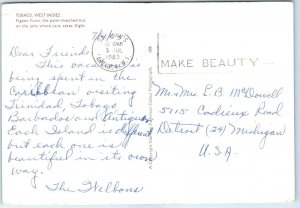 TOBAGO, WEST INDIES
Pigeon Point, the palm-thatched hut
on the jetty where cars, takes flight.
Dear Friends
This vacation is
being spent in the
Caribbean visiting
Trinidad, Tobago
Barbados and Antigua
Each Island is different
but each one is
beautiful in its own
way.
The Helbons
MAKE BEAUTY
Mr. + Mrs. L B McDowell
5115 Cadieux Road
Detroit (24) Michigan
U.S.A.